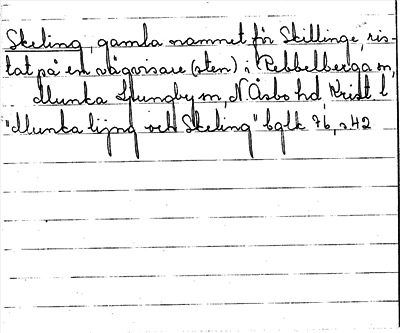 Skeling, gamla namnet för Skillinge, ris-
tat på en vägvisare (sten) i Rebbelberga sn,
Munka Ljungby sn, N Åsbo hd, Krist l
"Munka lijng och Skeling" bglk 76, s 42